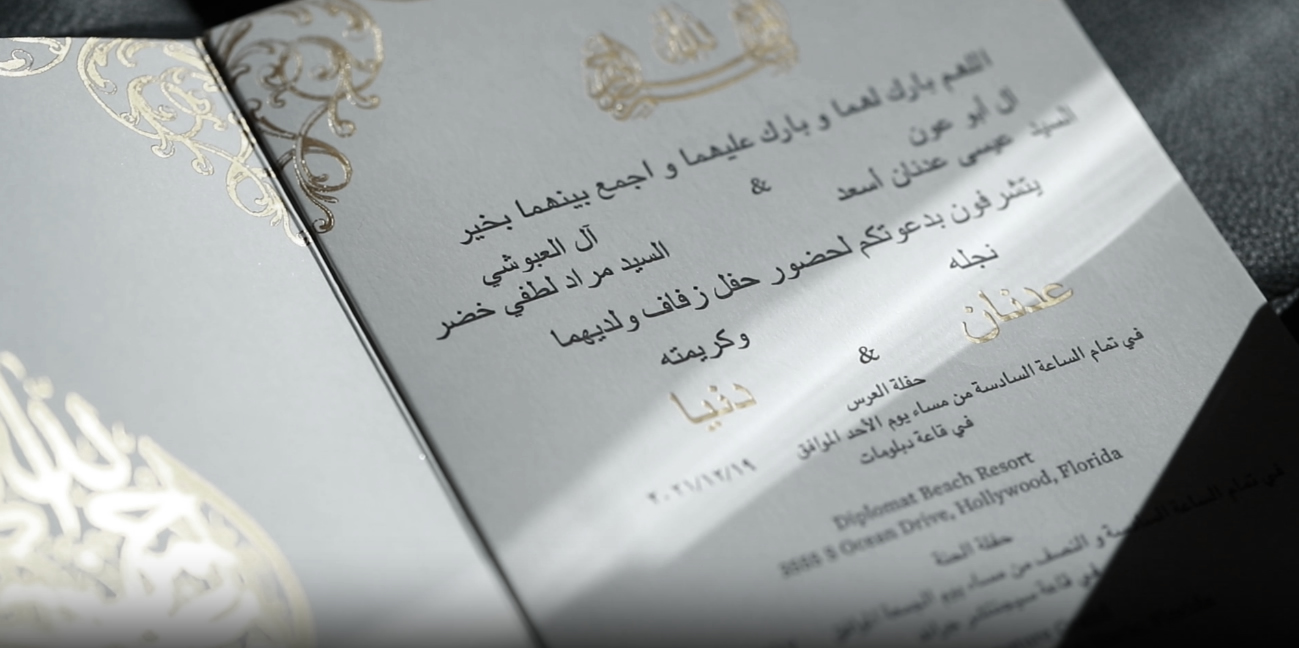 الله
اللهم بارك لهما و بارك عليهما و اجمع بينهما بخير
آل أبو عون & آل العبوشي
السيد عيسى عدنان أسعد السيد مراد لطفي خضر
يتشرفون بدعوتكم لحضور حفل زفاف ولديهما
نجله وكريمته
عدنان & دنيا
حفلة العرس
في تمام الساعة السادسة من مساء يوم الأحد الموافق ٢٠٢١/١٢/١٩
في قاعة دبلومات
Diplomat Beach Resort
3555 S Ocean Drive, Hollywood, Florida
حفلة الحنة
في تمام الساعة و النصف من مساء يوم الجمعة الموافق
في قاعة